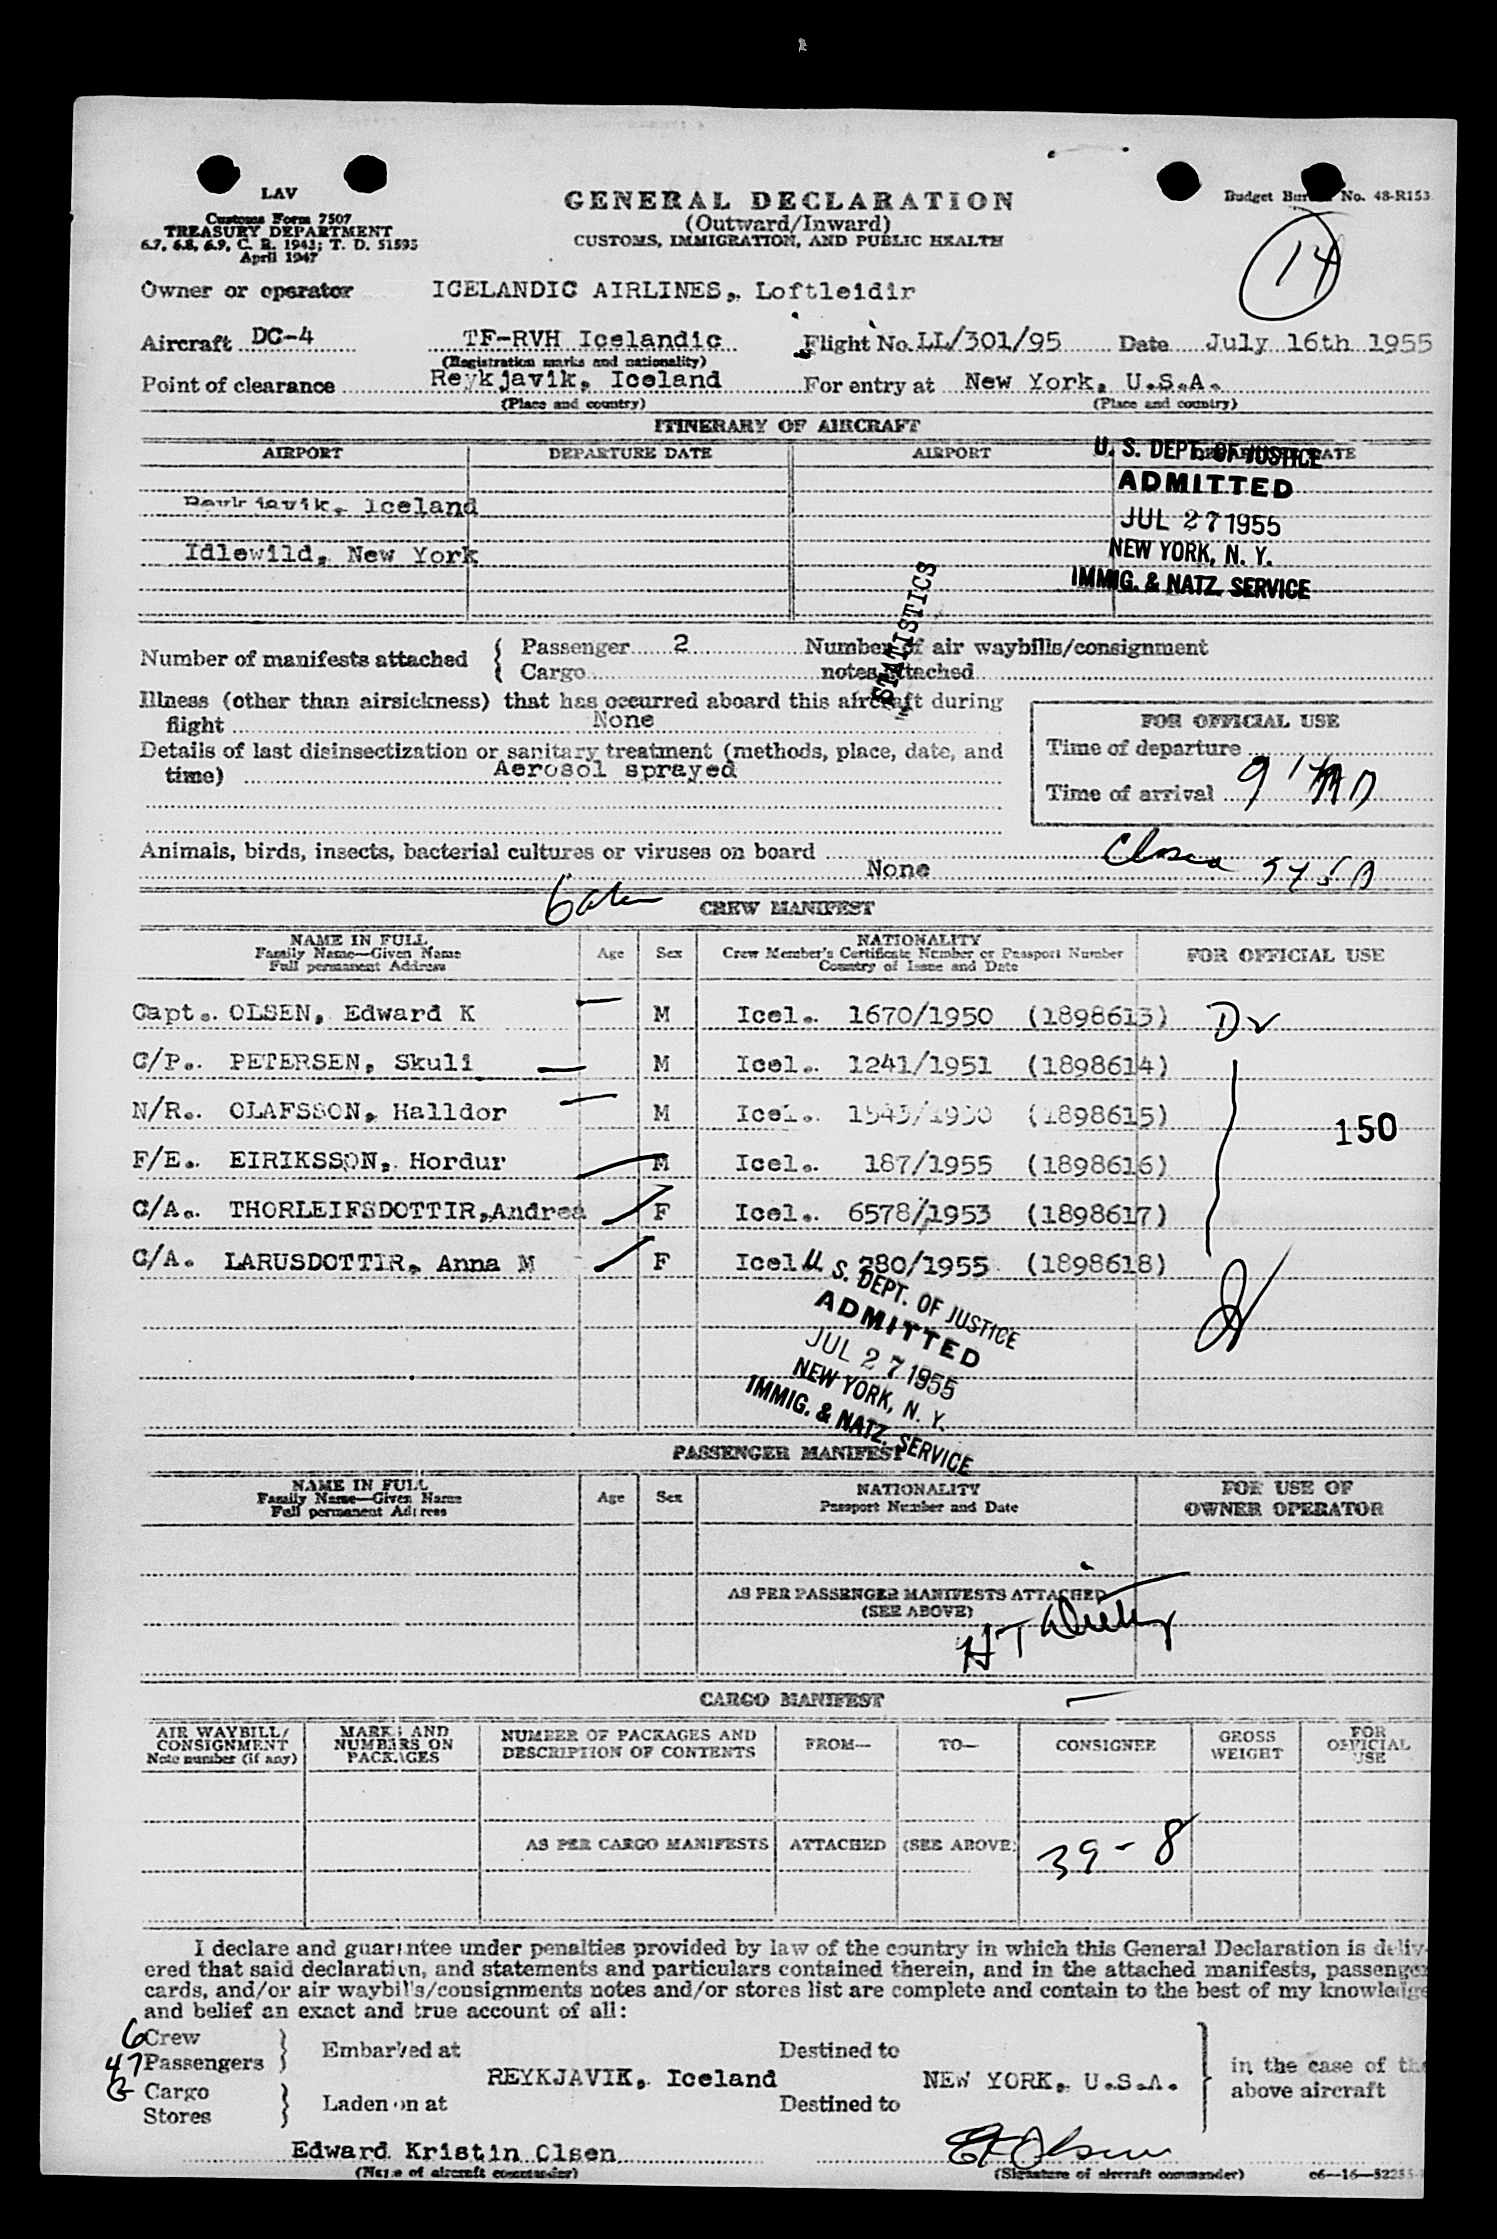 LAV
Customs Form 7507
TREASURY DEPARTMENT
6.7, 6.8, 6.9, C. R. 1943; T. D. 51595
April 1947
GENERAL DECLARATION
(Outward/Inward)
CUSTOMS, IMMIGRATION, AND PUBLIC HEALTH
Budget Bureau No. 48-R153
14
Owner or operator ICELANDIC AIRLINES, Loftleidir
Aircraft DC-4 TF-RVH Icelandic Flight No. LL/301/95 Date July 16th 1955
(Registration marks and nationality)
Point of clearance Reykjavik, Iceland For entry at New York, U.S.A.
(Place and country) (Place and country)
ITINERARY OF AIRCRAFT
AIRPORT DEPARTURE DATE AIRPORT DEPARTURE DATE
U. S. DEPT. OF JUSTICE
ADMITTED
JUL 27 1955
NEW YORK, N. Y.
IMMIG. & NATZ. SERVICE
Reykjavik, Iceland
Idlewild, New York
STATISTICS
Number of manifests attached { Passenger 2 Number of air waybills/consignment
Cargo notes attached
Illness (other than airsickness) that has occurred aboard this aircraft during
flight None
Details of last disinsectization or sanitary treatment (methods, place, date, and
time) Aerosol sprayed
FOR OFFICIAL USE
Time of departure
Time of arrival
Animals, birds, insects, bacterial cultures or viruses on board
None
Closed
CREW MANIFEST
NAME IN FULL
Family Name—Given Name
Full permanent Address
Age Sex
NATIONALITY
Crew Member's Certificate Number or Passport Number
Country of Issue and Date
FOR OFFICIAL USE
Capt. OLSEN, Edward K M Icel. 1670/1950 (1898613)
C/P. PETERSEN, Skuli M Icel. 1241/1951 (1898614)
N/R. OLAFSSON, Halldor M Icel. 1543/1950 (1898615)
150
F/E. EIRIKSSON, Hordur M Icel. 187/1955 (1898616)
C/A. THORLEIFSDOTTIR, Andrea F Icel. 6578/1953 (1898617)
C/A. LARUSDOTTIR, Anna M F Icel. 280/1955 (1898618)
U. S. DEPT. OF JUSTICE
ADMITTED
JUL 27 1955
NEW YORK, N. Y.
IMMIG. & NATZ. SERVICE
PASSENGER MANIFEST
NAME IN FULL
Family Name—Given Name
Full permanent Address
Age Sex
NATIONALITY
Passport Number and Date
FOR USE OF
OWNER OPERATOR
AS PER PASSENGER MANIFESTS ATTACHED
(SEE ABOVE)
CARGO MANIFEST
AIR WAYBILL/
CONSIGNMENT
Note number (if any)
MARKS AND
NUMBERS ON
PACKAGES
NUMBER OF PACKAGES AND
DESCRIPTION OF CONTENTS
FROM—
TO—
CONSIGNEE
GROSS
WEIGHT
FOR
OFFICIAL
USE
AS PER CARGO MANIFESTS ATTACHED (SEE ABOVE)
39-8
I declare and guarantee under penalties provided by law of the country in which this General Declaration is deliv-
ered that said declaration, and statements and particulars contained therein, and in the attached manifests, passenger
cards, and/or air waybills/consignments notes and/or stores list are complete and contain to the best of my knowledge
and belief an exact and true account of all:
6 Crew
47 Passengers
Embarked at
Destined to
REYKJAVIK, Iceland NEW YORK, U.S.A.
in the case of the
above aircraft
Cargo
Stores
Laden on at
Destined to
Edward Kristin Olsen
E K Olsen
(Name of aircraft commander) (Signature of aircraft commander) c6—16—52255-1